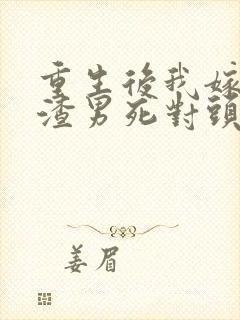 重生後我嫁
渣男死對頭
姜眉